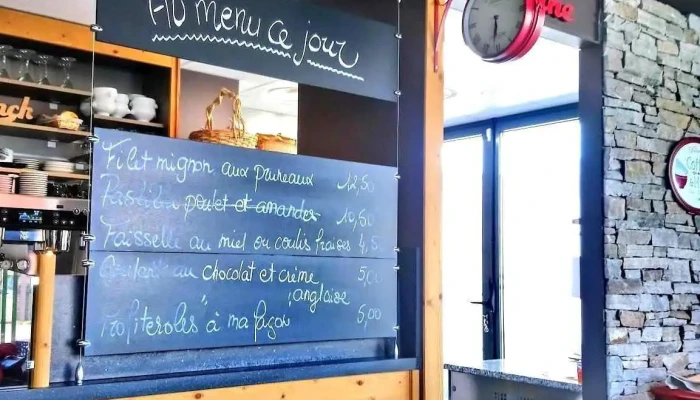 Au menu ce jour
Filet mignon aux pruneaux 12,50
Pastilla poulet et amandes 10,50
Faisselle au miel ou coulis fraises 4,5
Coulant au chocolat et crème 5,00
anglaise
Profiteroles "à ma façon 5,00